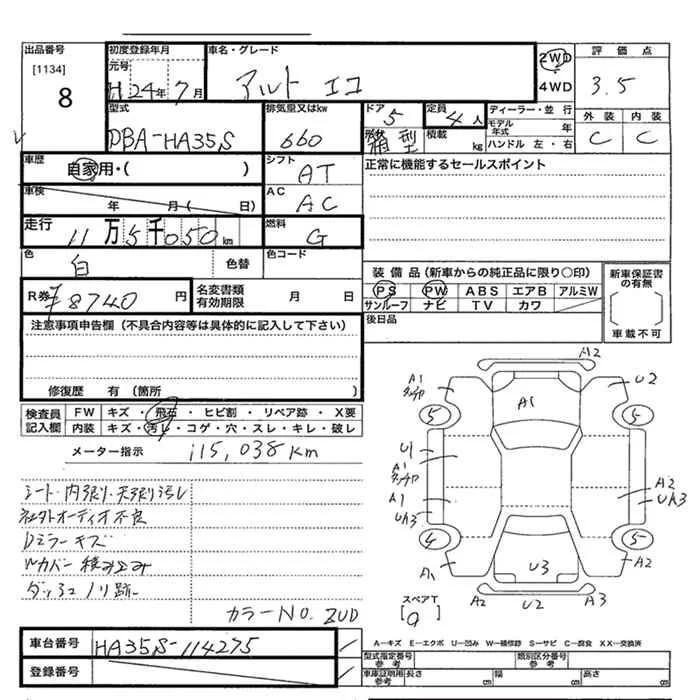 出品番号
[1134]
8
初度登録年月
元号
H 24年 7月
車名・グレード
アルト エコ
2WD
4WD
評価点
3.5
外装 内装
C C
型式
DBA-HA35S
排気量又はkw
660
ドア 5
形状 箱型
定員 4人
積載 kg
ディーラー・並行
モデル年式 年
ハンドル 左・右
車歴
自家用・( )
シフト
AT
正常に機能するセールスポイント
車検
年 月( 日)
AC
AC
走行
11万5千050km
燃料
G
色
白
色替
色コード
R券 ¥8740円
名変書類有効期限 月 日
装備品(新車からの純正品に限り○印)
PS PW ABS エアB アルミW
サンルーフ ナビ TV カワ
新車保証書の有無
車載不可
後日品
注意事項申告欄(不具合内容等は具体的に記入して下さい)
修復歴 有(箇所 )
検査員記入欄
FW キズ・飛石・ヒビ割・リペア跡・X要
内装 キズ・汚レ・コゲ・穴・スレ・キレ・破レ
メーター指示 115,038km
シート・内張り・天張り汚レ
社外オーディオ不良
Dミラーキズ
Wカバー積み込み
ダッシュノリ跡
カラーNO. ZUD
A2
A1
U2
A1
5
5
U1
A1
A1
UA3
A2
UA3
4
5
A1
U3
A2
A2 U2 A3
スペアT
[ ]
車台番号 HA35S-114275
登録番号
A-キズ E-エクボ U-凹み W-補修跡 S-サビ C-腐食 XX-交換済
型式指定番号参考
類別区分番号参考
車庫証明用参考 長さ cm 幅 cm 高さ cm